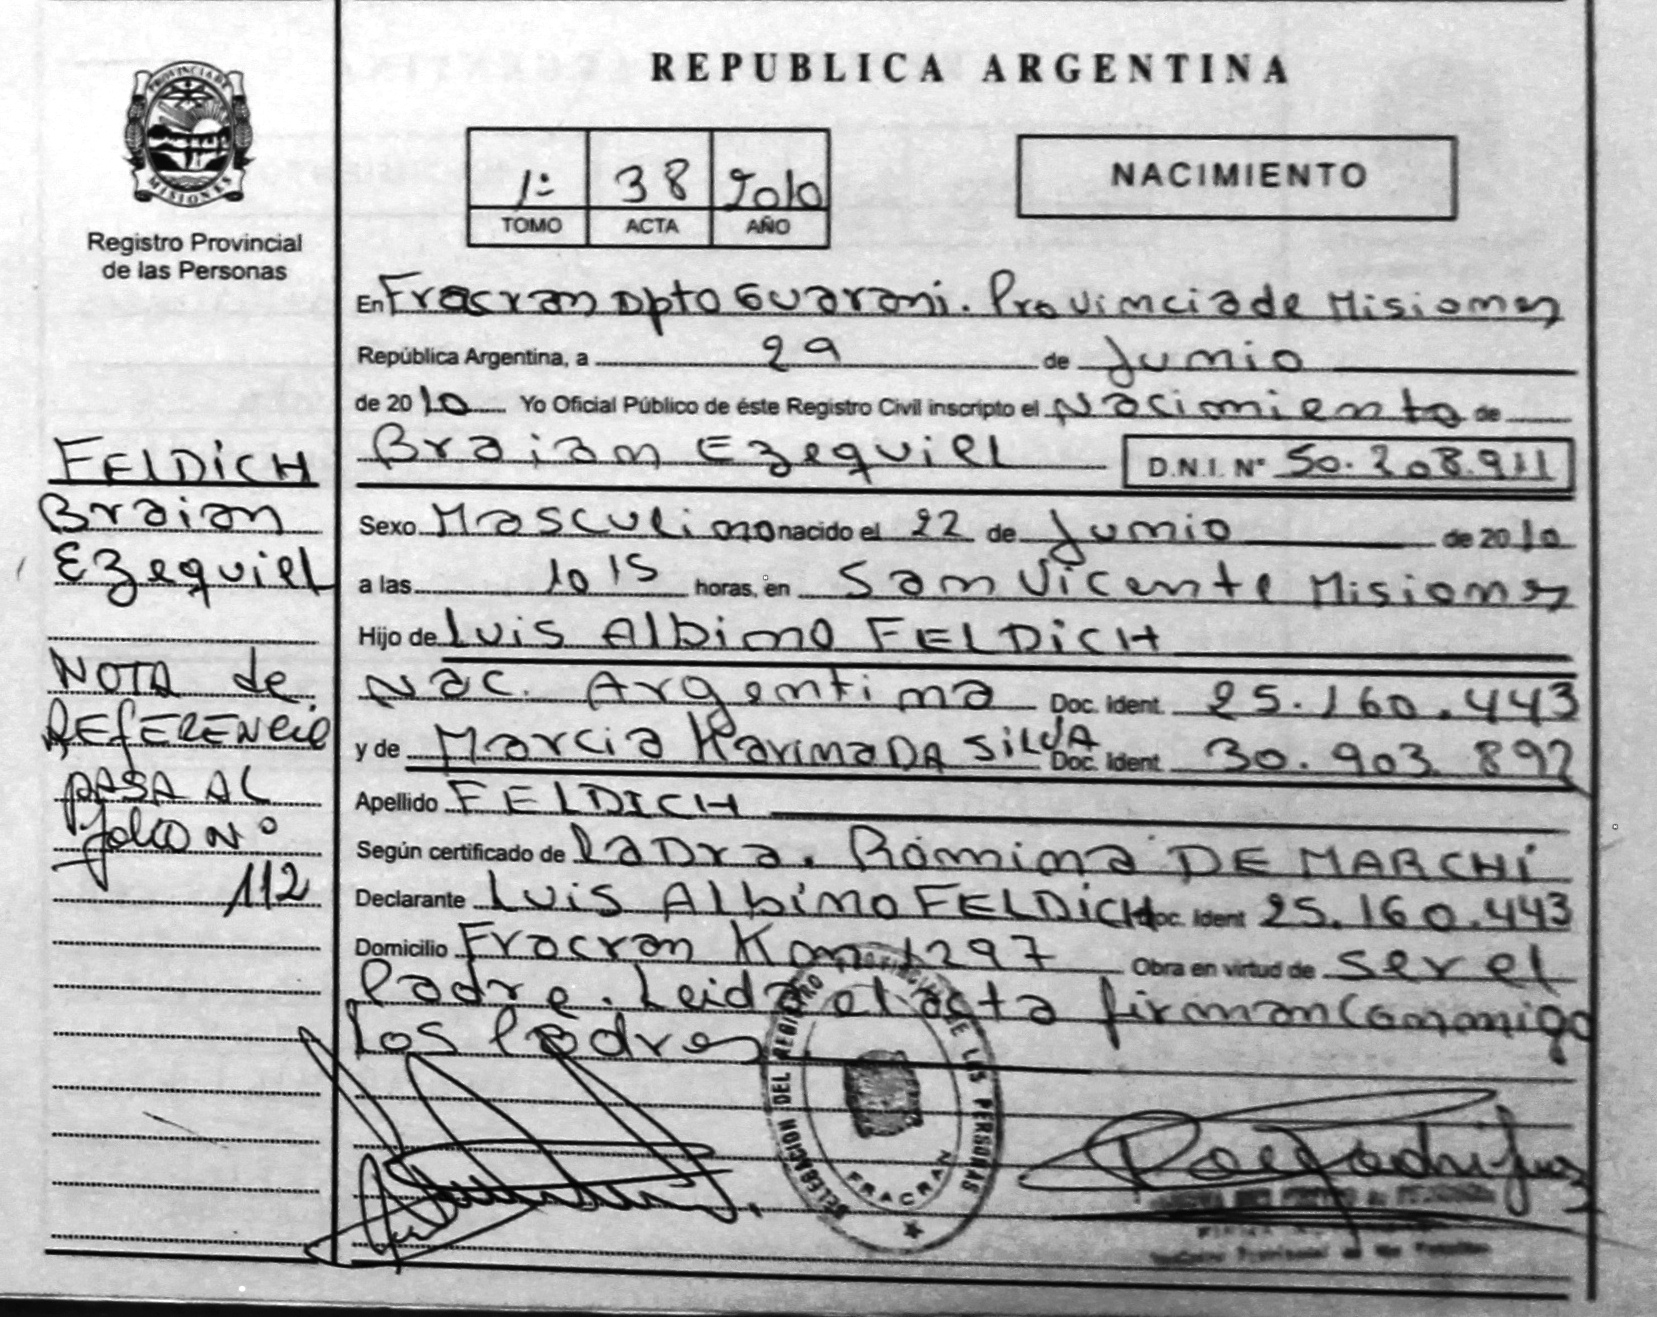 PROVINCIA DE MISIONES
Registro Provincial
de las Personas
FELDICH
Braian
Ezequiel
NOTA de
REFERENCIA
PASA AL
folio N°
112
REPUBLICA ARGENTINA
1º 38 2010
TOMO ACTA AÑO
NACIMIENTO
En Fracran Dpto Guarani. Provincia de Misiones
República Argentina, a 29 de Junio
de 2010 Yo Oficial Público de éste Registro Civil inscripto el Nacimiento de
Braian Ezequiel D.N.I. Nº 50.208.911
Sexo Masculino nacido el 22 de Junio de 2010
a las 10 15 horas, en San Vicente Misiones
Hijo de Luis Albino FELDICH
Nac. Argentina Doc. Ident. 25.160.443
y de Marcia Karina DA SILVA Doc. Ident. 30.903.892
Apellido FELDICH
Según certificado de la Dra. Romina DE MARCHI
Declarante Luis Albino FELDICH Doc. Ident 25.160.443
Domicilio Fracran Km 1297 Obra en virtud de ser el
Padre. Leida el acta firman Conmigo
los Padres
DELEGACION DEL REGISTRO PROVINCIAL DE LAS PERSONAS
FRACRAN